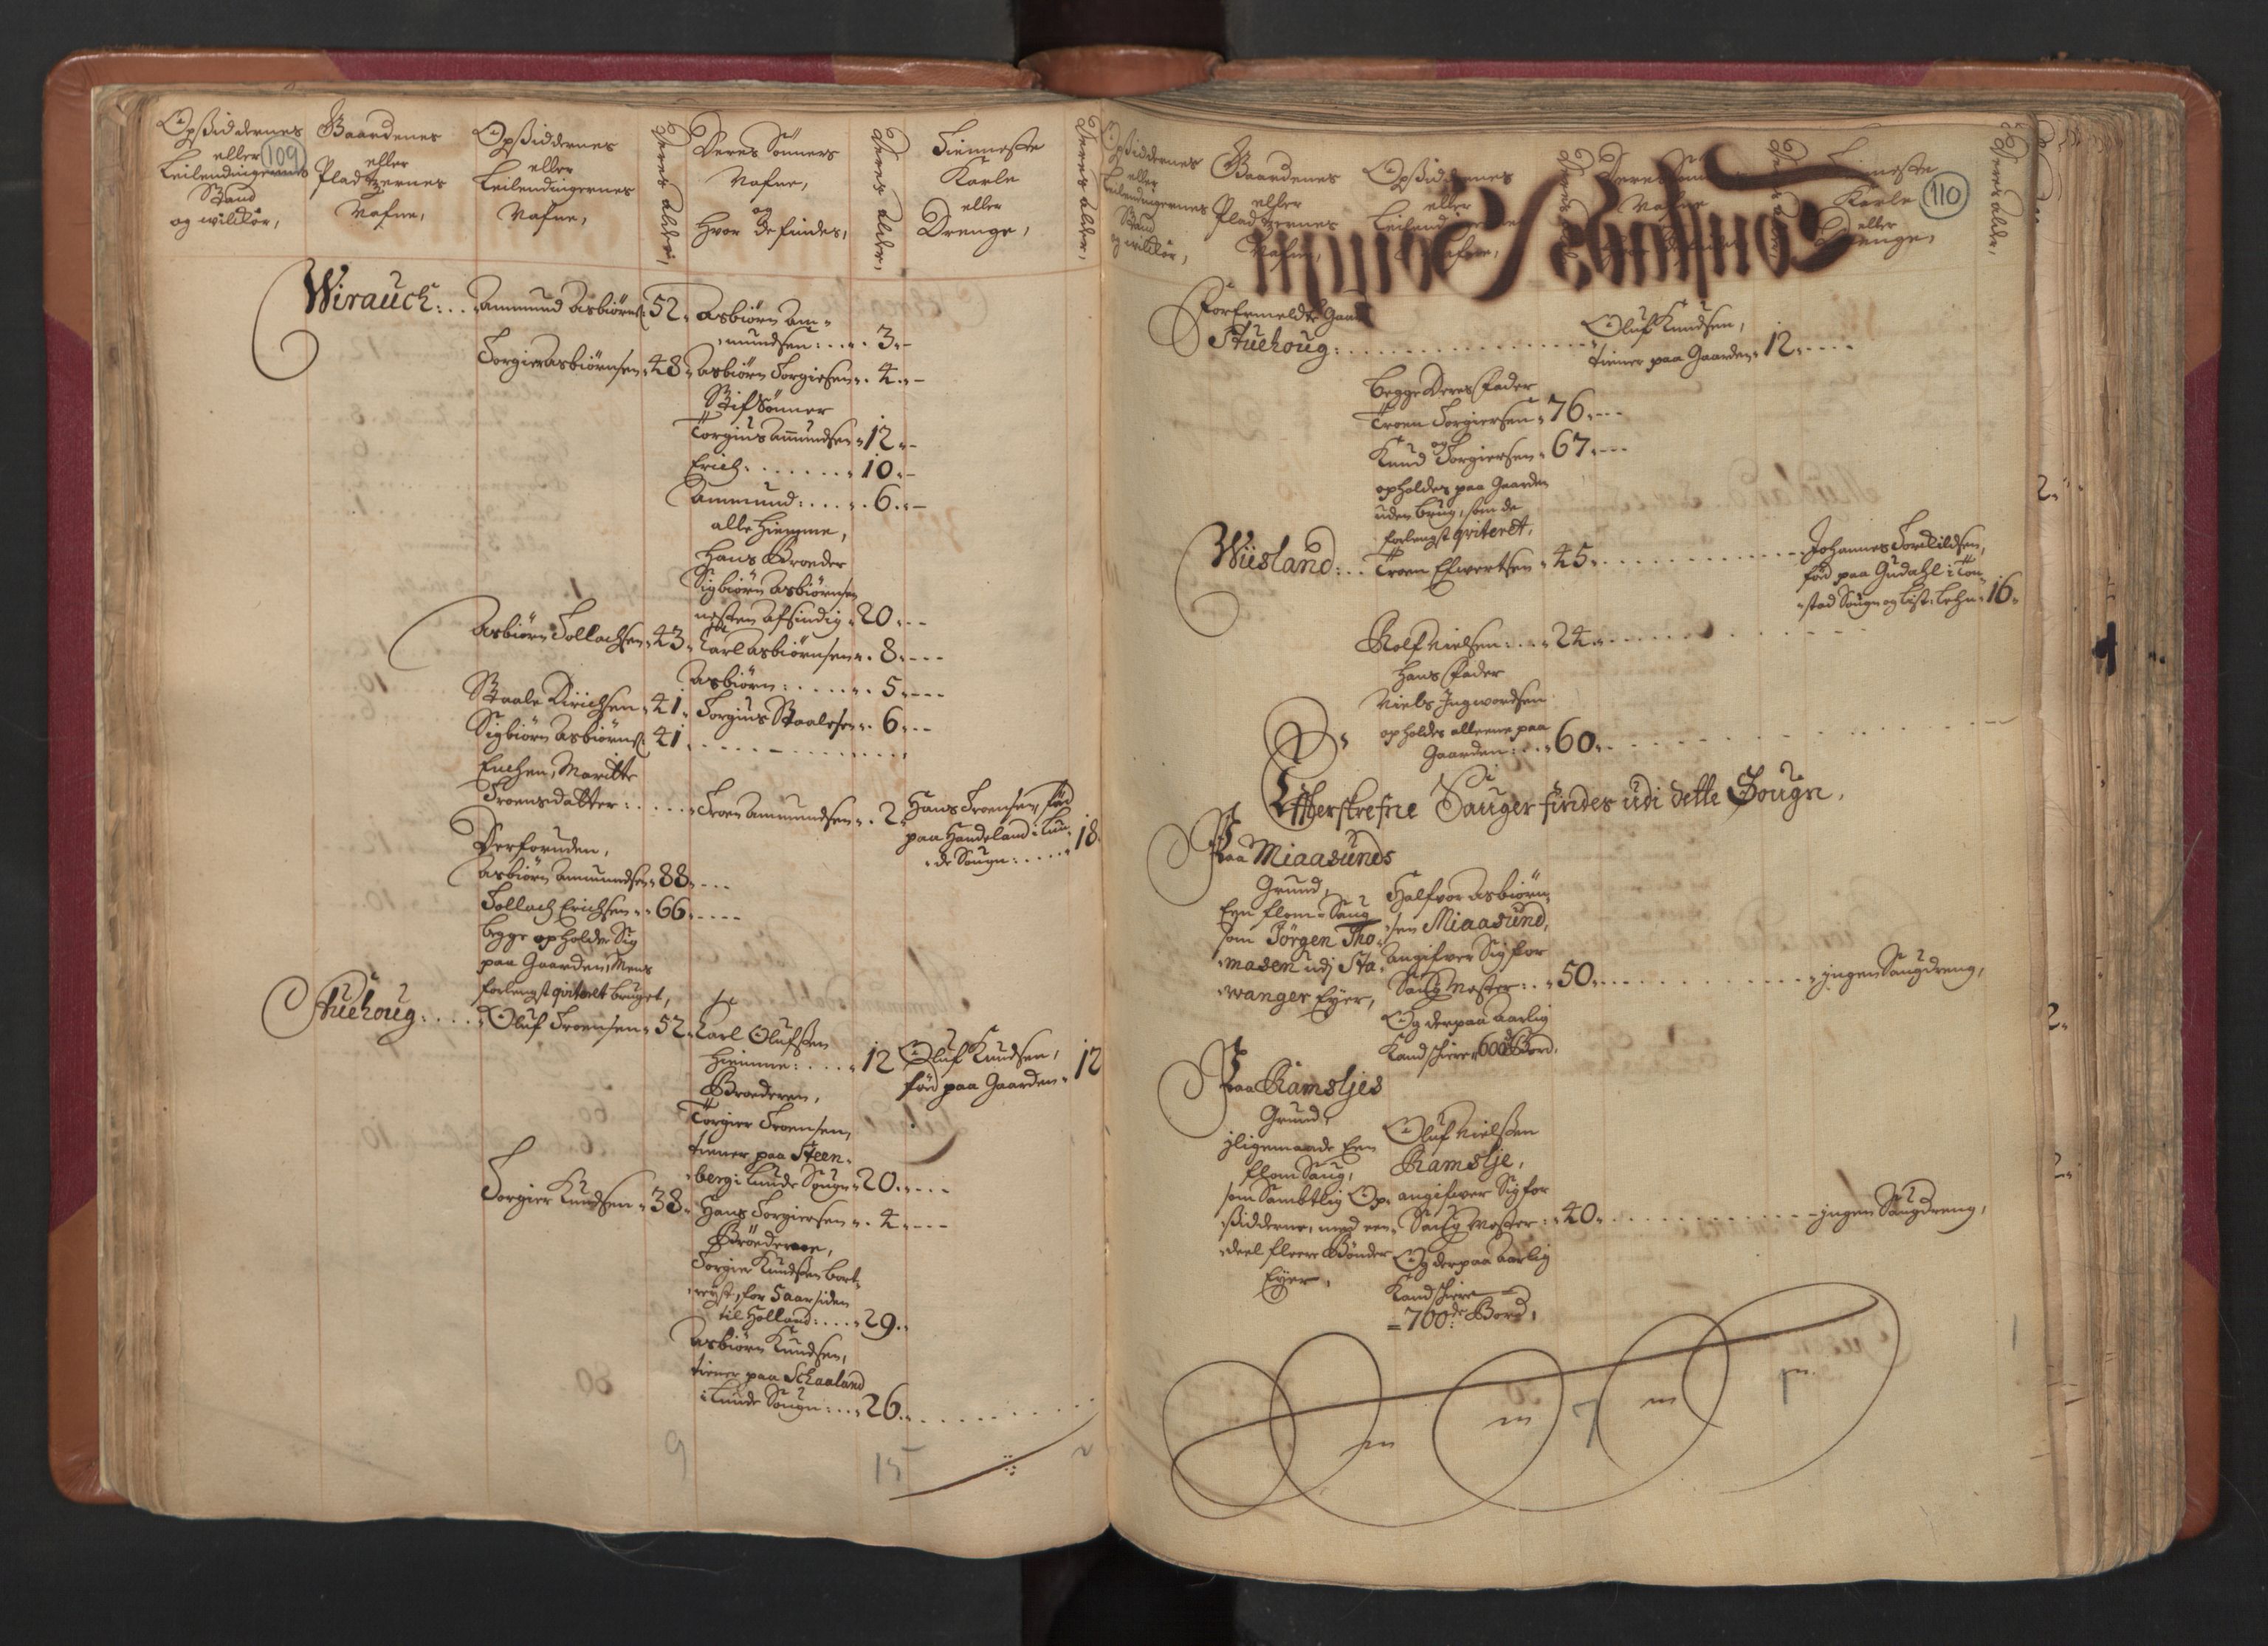 109
Opsiddernes
eller
Leilendingernes
Stand
og wilkor,
Gaardenes
eller
Pladtzernes
Nafne,
Opsiddernes
eller
Leilendingernes
Nafne,
Deres alder,
Deres Sönners
Nafne,
og
hvor de findes,
Deres alder,
Tienneste
Karle
eller
Drenge,
Deres alder,
Wirauch: ..
Ammund Asbiörns: 52.
Asbiörn Am-
mundsen: .... 3.
Torgier Asbiörnsen . 48.
Asbiörn Torgiersen . 4.
Stifsönner
Torgius Amundsen . 12.
Erich: ...... 10.
Ammund: .... 6.
alle hiemme,
Hans Broeder
Sigbiörn Asbiörnsen
nesten afsindig . 20.
Asbiörn Tollachsen . 43.
Carl Asbiörnsen . 8.
Asbiörn: ..... 5.
Staale Erichsen . 41.
Torgius Staalesen . 6.
Sigbiörn Asbiörns: 41.
Enchen, Maritte
Troensdatter: .....
Troen Ammundsen . 2.
Hans Troensen, föd
paa Handeland i Lun-
de Sougn: .... 18.
Derforuden,
Asbiörn Ammundsen . 88.
Tollach Erichsen . 66.
begge opholder Sig
paa Gaarden, Mens
forlengst qviteret bruget,
Stuehoug: ....
Oluf Troensen . 52.
Carl Olufsen
hiemme: .... 12
Oluf Knudsen,
föd paa Gaarden . 12
Broederen,
Torgier Troensen,
tiener paa Steen-
berg i Lunde Sougn . 20.
Torgier Knudsen . 38.
Hans Torgiersen . 4.
Bröderne,
Torgier Knudsen bort-
reyst, for 5 aar siden
til Holland: ... 29.
Asbiörn Knudsen,
tiener paa Schaaland
i Lunde Sougn: ... 26.
9
15
2
110
Opsiddernes
eller
Leilendingernes
Stand
og wilkor,
Gaardenes
eller
Pladtzernes
Nafne,
Opsiddernes
eller
Leilendingernes
Nafne,
Deres alder,
Deres Sönners
Nafne
Deres alder,
Tienneste
Karle
eller
Drenge,
Deres alder,
Forermeldte Gaard
Stuehoug: ..........
Oluf Knudsen,
tiener paa Gaarden . 12.
begge Deres Fader
Troen Torgiersen . 76.
og
Knud Torgiersen . 67.
opholdes paa Gaarden
uden brug, som de
forlengst qviteret,
Wiisland: ..
Troen Elwertsen . 45.
Johannes Torkildsen,
föd paa Gudahl i Ton-
stad Sougn og List: Lehn . 16.
Rolf Nielsen: ... 24.
hans Fader
Niels Ingwordsen
opholdes alleene paa
Gaarden: ... 60.
Effterskrefne Sauger findes udi dette Sougn,
Paa Miaasunds
Grund,
Een flom-Saug
som Jörgen Tho-
masen udj Sta-
wanger Eyer,
Halfvor Asbiörn-
sen Miaasund,
angifwer Sig for
Saug Mester: . 50.
Og derpaa aarlig
Kand schiere 600de Bord.
jngen Saugdreng,
Paa Ramsljes
Grund,
jligemaade Een
flom Saug,
som Sambtlig Op-
sidderne, med een-
deel fleere Bönder
Eyer,
Oluf Nielsen
Ramslje,
angifwer Sig for
Saug Mester: 40.
Og derpaa aarlig
Kand schiere
700de Bord,
jngen Saugdreng,
7